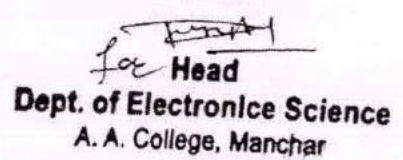 for Head
Dept. of Electronice Science
A. A. College, Manchar